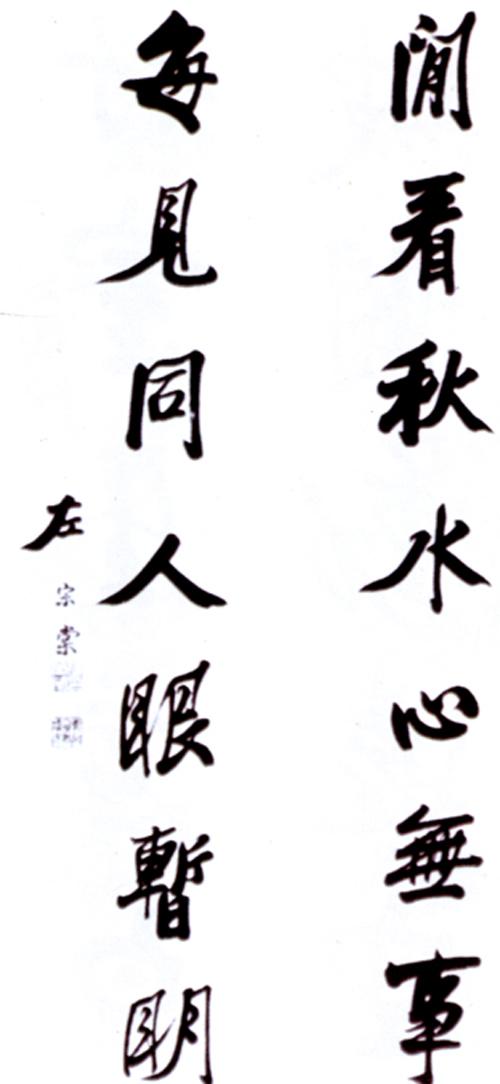 閒看秋水心無事
每見同人眼暫明
左宗棠